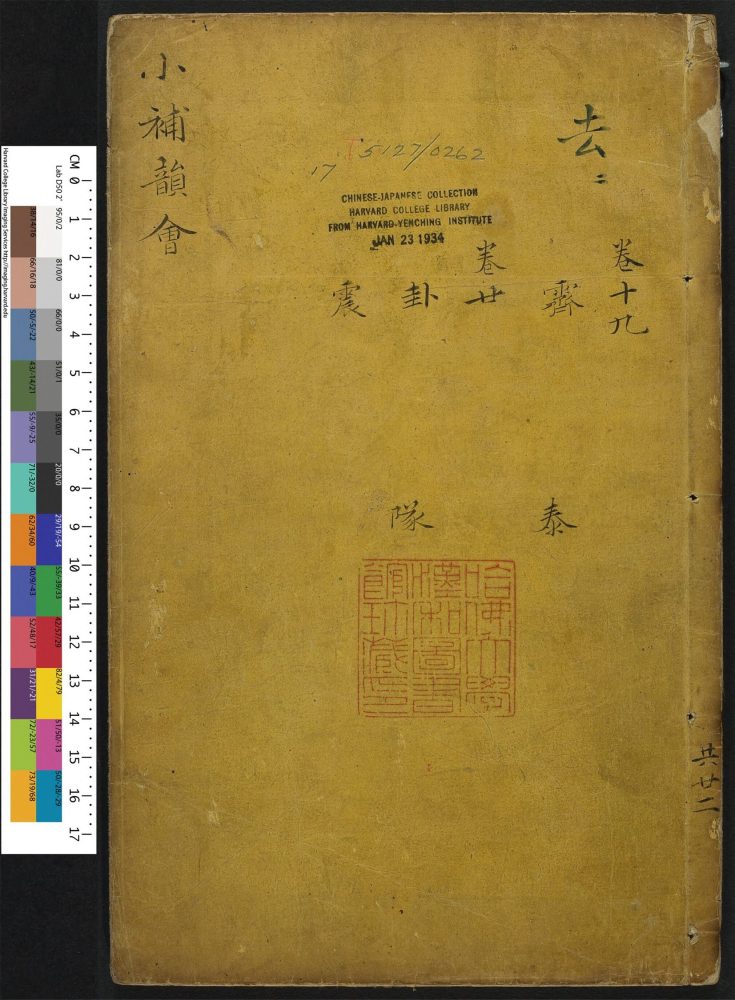 去二
卷十九
霽
泰
卷廿
卦
隊
震
小補韻會
共廿二
5127/0262
17
CHINESE-JAPANESE COLLECTION
HARVARD COLLEGE LIBRARY
FROM HARVARD-YENCHING INSTITUTE
JAN 23 1934
哈佛大學
漢和圖書
館珍藏印
CM 0 1 2 3 4 5 6 7 8 9 10 11 12 13 14 15 16 17
Lab D50 2˚ 95/0/2 81/0/0 66/0/0 51/0/1 35/0/0 20/0/0 29/19/-54 55/-39/33 42/57/29 82/4/79 51/50/-13 50/-28/-29
38/14/16 66/16/18 50/-5/-22 43/-14/21 55/-9/-25 71/-32/0 62/34/60 40/9/-43 52/48/17 31/21/-21 72/-23/57 73/19/68
Harvard College Library Imaging Services http://imaging.harvard.edu